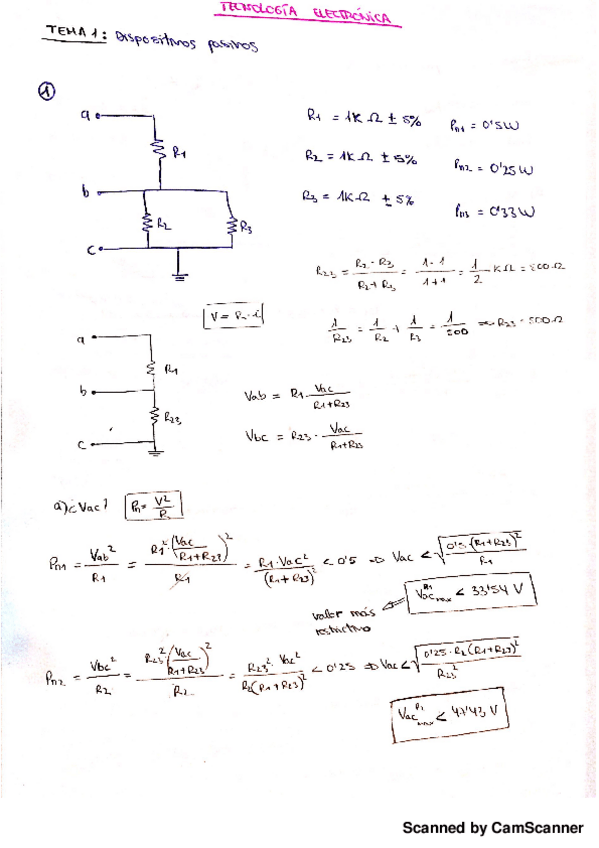 TECNOLOGÍA ELECTRÓNICA
TEMA 1: Dispositivos pasivos
1
a
R1
b
R2
R3
c
R1 = 1K Ω ± 5%
Pn1 = 0'5W
R2 = 1K Ω ± 5%
Pn2 = 0'25W
R3 = 1K Ω ± 5%
Pn3 = 0'33W
R23 = R2 · R3 / R2 + R3 = 1 · 1 / 1 + 1 = 1/2 KΩ = 500 Ω
V = R · i
1/R23 = 1/R2 + 1/R3 = 1/500 ⇒ R23 = 500 Ω
a
R1
b
R23
c
Vab = R1 · Vac / R1+R23
Vbc = R23 · Vac / R1+R23
a) ¿Vac? Pn = V²/R
Pn1 = Vab²/R1 = R1² (Vac / R1+R23)² / R1 = R1 · Vac² / (R1 + R23)² < 0'5 ⇒ Vac < √(0'5 (R1+R23)² / R1)
Vac max < 33'54 V
valor más
restrictivo
Pn2 = Vbc²/R2 = R23² (Vac / R1+R23)² / R2 = R23² · Vac² / R2(R1+R23)² < 0'25 ⇒ Vac < √(0'25 · R2 (R1+R23)² / R23²)
Vac max < 47'43 V
Scanned by CamScanner